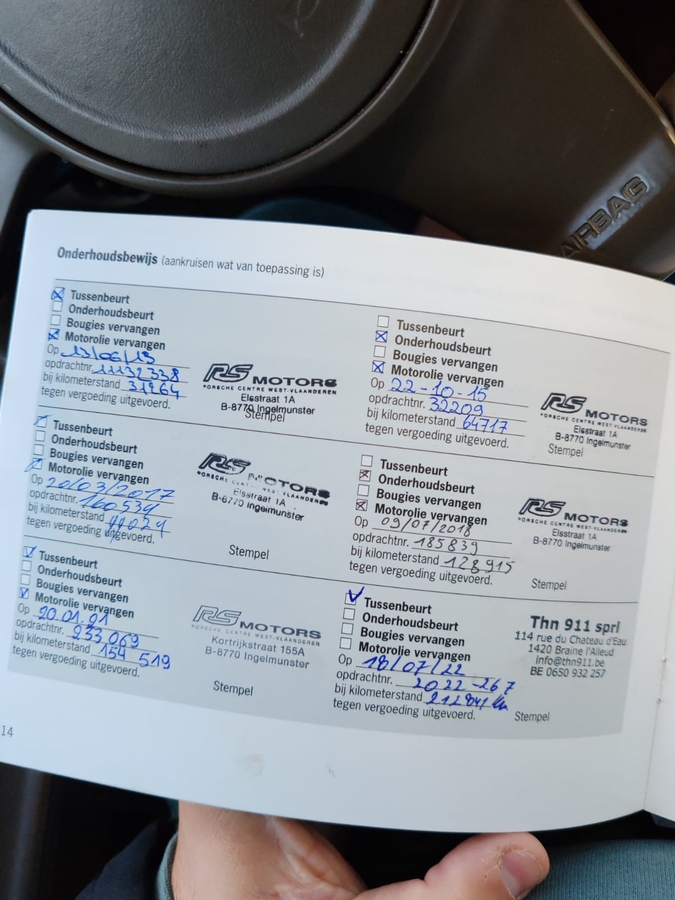 AIRBAG
Onderhoudsbewijs (aankruisen wat van toepassing is)
Tussenbeurt
Onderhoudsbeurt
Bougies vervangen
Motorolie vervangen
Op 13/06/13
opdrachtnr. 11132338
bij kilometerstand 31264
tegen vergoeding uitgevoerd.
RS MOTORS
PORSCHE CENTRE WEST-VLAANDEREN
Elsstraat 1A
B-8770 Ingelmunster
Stempel
Tussenbeurt
Onderhoudsbeurt
Bougies vervangen
Motorolie vervangen
Op 22-10-15
opdrachtnr. 32209
bij kilometerstand 64717
tegen vergoeding uitgevoerd.
RS MOTORS
PORSCHE CENTRE WEST-VLAANDEREN
Elsstraat 1A
B-8770 Ingelmunster
Stempel
Tussenbeurt
Onderhoudsbeurt
Bougies vervangen
Motorolie vervangen
Op 20/03/2017
opdrachtnr. 160539
bij kilometerstand
tegen vergoeding uitgevoerd.
RS MOTORS
PORSCHE CENTRE WEST-VLAANDEREN
Elsstraat 1A
B-8770 Ingelmunster
Stempel
Tussenbeurt
Onderhoudsbeurt
Bougies vervangen
Motorolie vervangen
Op 09/07/2018
opdrachtnr. 185839
bij kilometerstand 128915
tegen vergoeding uitgevoerd.
RS MOTORS
PORSCHE CENTRE WEST-VLAANDEREN
Elsstraat 1A
B-8770 Ingelmunster
Stempel
Tussenbeurt
Onderhoudsbeurt
Bougies vervangen
Motorolie vervangen
Op 20.01.21
opdrachtnr. 233069
bij kilometerstand 154 519
tegen vergoeding uitgevoerd.
RS MOTORS
PORSCHE CENTRE WEST-VLAANDEREN
Kortrijkstraat 155A
B-8770 Ingelmunster
Stempel
Tussenbeurt
Onderhoudsbeurt
Bougies vervangen
Motorolie vervangen
Op 18/07/22
opdrachtnr. 2022-267
bij kilometerstand 212841 km
tegen vergoeding uitgevoerd.
Thn 911 sprl
114 rue du Chateau d'Eau
1420 Braine l'Alleud
info@thn911.be
BE 0650 932 257
Stempel
14